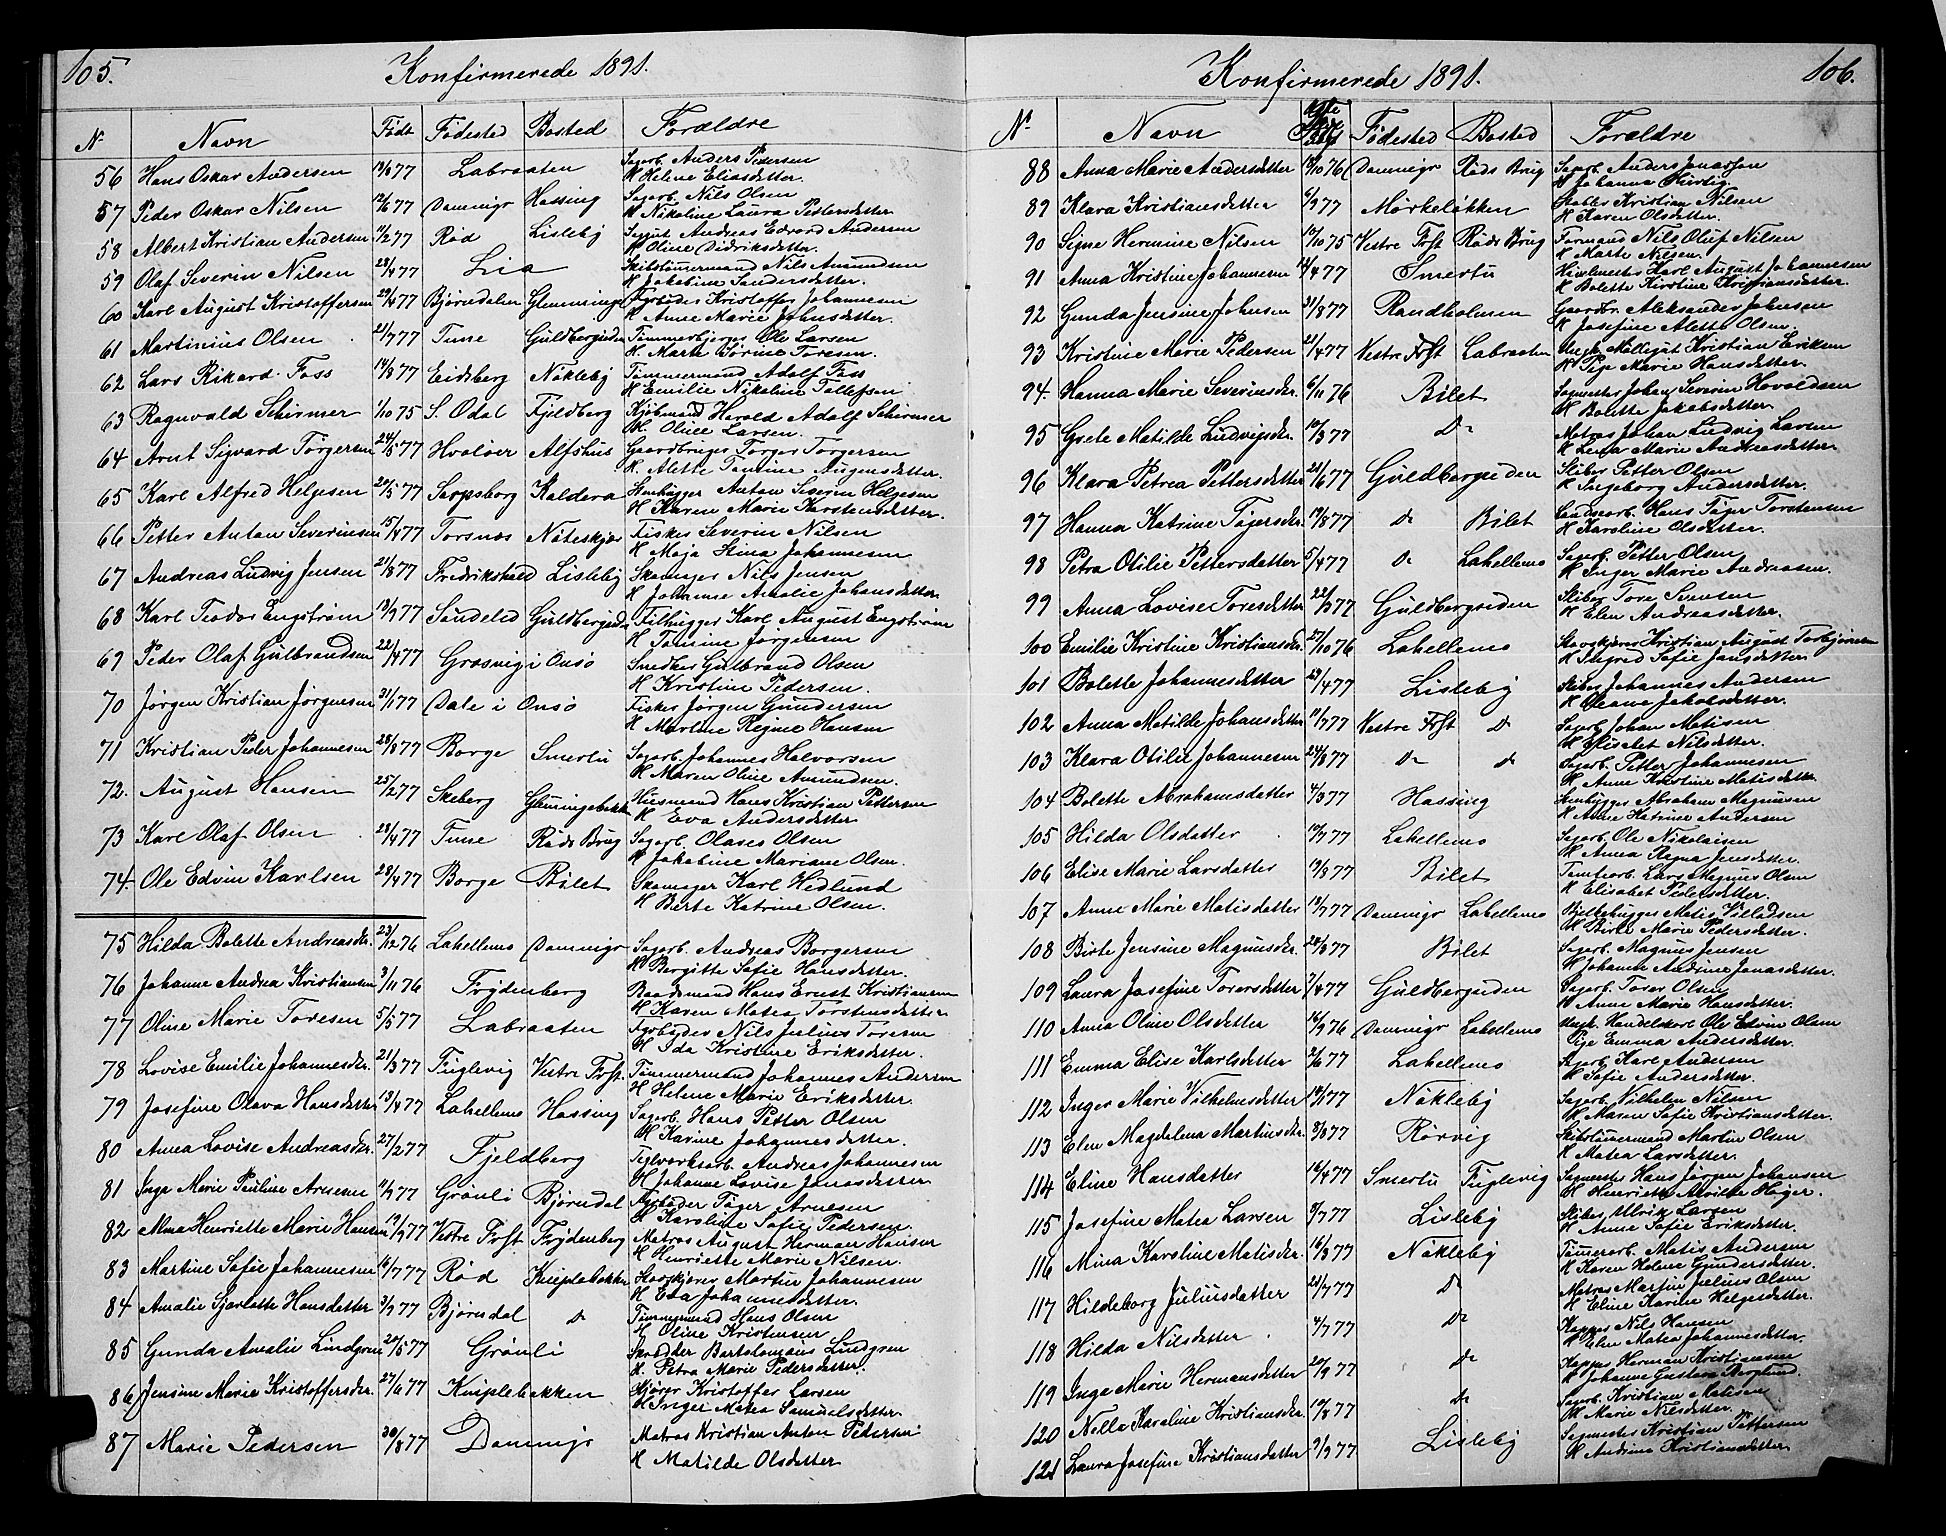 105.
Konfirmerede 1891.
N. Navn Født Fødested Bosted Forældre
56 Hans Oskar Andersen 77 Labraaten Sagarb. Anders Pedersen
H Helene Eliasdatter.
57 Peder Oskar Nilsen 77 Dammyr Hassing Sagarb. Nils Olsen
H Nikoline Laura Pettersdatter
58 Albert Kristian Andersen 77 Rød Lisleby Andreas Edvard Andersen
H Oline Didriksdatter.
59 Olaf Severin Nilsen 28/4 77 Lia Skibstømermand Nils Amundsen
H Jakobine Sandersdatter.
60 Karl August Kristoffersen 29/4 77 Bjørndalen Glemminge Arbeider Kristoffer Johannesen
H Anne Marie Johnsdatter.
61 Martinius Olsen 21/7 77 Tune Guldbergsiden Tømmerbjerger Ole Larsen
H. Marte Sørine Toresen.
62 Lars Rikard Foss 14/8 77 Eidsberg Nøkleby Tømmermand Adolf Foss
H Emilie Nikoline Tollefsen
63 Ragnvald Schirmer 1/10 75 S. Odal Fjeldberg Kjøbmand Harald Adolf Schirmer
H Oline Larsen.
64 Arnt Sigvard Torgersen 24/6 77 Hvaløer Alfshus Gaardbruger Torger Torgersen
H. Alette Tomine Mugensdatter.
65 Karl Alfred Helgesen 20/5 77 Sarpsborg Kaldera Stenhugger Anton Severin Helgesen
H Karen Marie Karstensdatter.
66 Petter Anton Severinsen 15/4 77 Torsnæs Nøteskjær Fisker Severin Nilsen
H Maja Stina Johannesen
67 Andreas Ludvig Jensen 21/8 77 Fredrikshald Lisleby Skomager Nils Jensen
H Johanne Amalie Johansdatter
68 Karl Teodor Engstrøm 13/9 77 Søndeled Guldbergsiden Filhugger Karl August Engstrøm
H Tomine Jørgensen
69 Peder Olaf Gulbrandsen 22/4 77 Græsvig i Onsø Snedker Gulbrand Olsen
H Kristine Pedersen.
70 Jørgen Kristian Jørgensen 31/1 77 Dale i Onsø Fisker Jørgen Gundersen
H Martine Regine Hansen
71 Kristian Peder Johannesen 28/8 77 Borge Smertu Sagarb. Johannes Halvorsen
H Maren Oline Amundsen.
72. August Hansen 25/2 77 Skeberg Glemingebakke Huusmand Hans Kristian Pettersen
H Eva Andersdatter
73 Karl Olaf Olsen 28/4 77 Tune Røds Brug Sagarb. Olaves Olsen
H Jakobine Mariane Olsen.
74. Ole Edvin Karlsen 28/4 77 Borge Bilet Skomager Karl Hedlund
H Berte Katrine Olsen.
75 Hilda Bolette Andreasdr. 23/12 76 Lahellemo Dammyr Sagarb. Andreas Borgersen
H Bergitte Sofie Hansdatter.
76 Johanne Andrea Kristiansen 3/11 76 Frydenberg Baadsmand Hans Ernst Kristiansen
H Karen Matea Torstensdatter
77 Oline Marie Toresen 5/5 77 Labraaten Arbeider Nils Julius Toresen
H Ida Kristine Eriksdatter.
78 Lovise Emilie Johannesdr. 21/3 77 Fuglevig Vestre Frst. Tømmermand Johannes Andersen
H Helene Marie Eriksdatter.
79 Josefine Olava Hansdatter 13/4 77 Lahellemo Hassing Sagarb. Hans Petter Olsen
H Karine Johannesdatter.
80 Anna Lovise Andreasdr. 27/2 77 Fjeldberg Teglverksarb. Andreas Johannesen
H Johanne Lovise Jonasdatter
81 Inga Marie Pauline Arnesen 77 Grønli Bjørndal Arbeider Tøger Arnesen
H Karoline Sofie Pedersen.
82 Alma Henriette Marie Hansen 19/9 77 Vestre Frst Frydenberg Matros August Herman Hansen
H Henriette Marie Nilsen.
83 Martine Sofie Johannesen 16/7 77 Rød Kniplebakke Skovskjører Martin Johannesen
H Eva Johannesdatter.
84 Amalie Sjarlotte Hansdatter 3/9 77 Bjørndal do Tømmermand Hans Olsen
H Oline Kristensen
85 Gunda Amalie Lindgren 20/5 77 Grønli Skrædder Bartolomæus Lindgren
H. Petra Marie Pedersdatter.
86 Jensine Marie Kristoffersdr. 27/6 77 Kniplebakken Kjører Kristoffer Larsen
H Inger Matea Samuelsdatter.
87 Marie Pedersen 30/8 77 Dammyr Matros Kristian Anton Pedersen
H Matilde Olsdatter
106.
Konfirmerede 1891.
Nr. Navn Fødested Bosted Forældre
88 Anna Marie Andersdatter 76 Dammyr Røds Brug Sagarb. Anders Jonassen
H Johanna
89 Klara Kristiansdatter 6/9 77 Mørkeløkken Kristian Nilsen
H Karen Olsdatter.
90 Signe Hermine Nilsen 75 Vestre Frst Røds Brug Formand Nils Oluf Nilsen
H Marte Nilsen.
91 Anna Kristine Johannesen 77 Smertu Karl August Johannesen
H Bolette Kirstine Kristiansdatter.
92 Gunda Jensine Johnsen 31/8 77 Randholmen Gaardbr. Aleksander Johnsen
H Josefine Alette Olsen.
93 Kristine Marie Pedersen 21/4 77 Vestre Frst Labraaten Ungk. Møllegut Kristian Eriksen
Pige Marie Hansdatter.
94. Hanna Marie Severinsdr. 6/11 76 Bilet Sagmester Johan Severin Havoldsen
H Bolette Jakobsdatter.
95 Grete Matilde Ludvigsdr. 77 Do Matros Johan Ludvig Larsen
H Lena Marie Andreasdatter
96 Klara Petrea Pettersdatter 21/6 77 Guldbergsiden Sliber Petter Olsen
H Ingeborg Andersdatter.
97 Hanna Katrine Tøgersdr. 19/8 77 do Bilet Landsarb. Hans Tøger Torstensen
H Karoline Olsdatter.
98 Petra Otilie Pettersdatter 5/4 77 do Lahellemo Sagarb. Petter Olsen
H Inger Marie Andreasen.
99 Anna Lovise Toresdatter 22/3 77 Guldbergsiden Sliber Tore Svensen
H Elen Andreasdatter.
100 Emilie Kristine Kristiansdr. 27/10 76 Lahellemo Skovskjører Kristian August Torbjørnsen
H Ingrid Sofie Jansdatter
101 Bolette Johannesdatter 77 Lisleby Sliber Johannes Andersen
H Oleane Jakobsdatter.
102 Anna Matilde Johansdatter 77 Vestre Frst do Sagarb. Johan Matisen
H Elisabet Nilsdatter.
103 Klara Otilie Johannesen 24/8 77 do do Sagarb. Petter Johannesen
H Anne Karoline Matisdatter
104 Bolette Abrahamsdatter 4/3 77 Hassing Stenhugger Abraham Magnusen
H Anne Katrine Andersen
105 Hilda Olsdatter 77 Lahellemo Sagarb. Ole Nikolaisen
H Anna Regine Jensdatter.
106 Elise Marie Larsdatter 77 Bilet Tomtearb. Lars Magnus Olsen
H Elisabet Pedersdatter.
107 Anne Marie Matisdatter 13/7 77 Dammyr Lahellemo Bjelkehugger Matis Villadsen
H Birte Marie Pedersdatter.
108 Birte Jensine Magnusdr. 77 Bilet Sagarb. Magnus Jensen
H Johanne Andrine Jonasdatter.
109 Laura Josefine Torersdatter 7/4 77 Guldbergsiden Sagarb. Torer Olsen
H Anne Marie Hansdatter.
110 Anna Oline Olsdatter 16/9 76 Dammyr Lahellemo Ungk. Handelskarl Ole Edvin Olsen
Pige Emma Andersdatter.
111 Emma Elise Karlsdatter 2/6 77 Lahellemo Sagarb. Karl Andersen
H Sofie Andersdatter.
112 Inger Marie Vilhelmsdatter 77 Nøkleby Sagarb. Vilhelm Nilsen
H Maren Sofie Kristiansdatter.
113 Elen Magdalena Martinsdr. 8/8 77 Rørvig Skibstømermand Martin Olsen
H Matea Larsdatter.
114 Eline Hansdatter 16/4 77 Smertu Fuglevig Sagmester Hans Jørgen Johansen
H Henriette Høyer.
115 Josefine Matea Larsen 9/7 77 Lisleby Sliber Ulrik Larsen
H Anne Sofie Eriksdatter.
116 Mina Karoline Matisdr. 16/3 77 Nøkleby Tømmerarb. Matis Andersen
H Karen Helene Gundersdatter.
117 Hildeborg Juliusdatter 21/7 77 do Matros Martin Julius Olsen
H Eline Karine Helgesdatter.
118 Hilda Nilsdatter 4/7 77 do Kapper Nils Hansen
H Elen Matea Johannesdatter.
119 Inga Marie Hermansdatter 20/9 77 do Kapper Herman Kristiansen
H Johanne Gustava Berglund.
120 Nella Karoline Kristiansdr. 77 do Sagarb. Kristian Matisen
H Marie Nilsdatter.
121 Laura Josefine Kristiansdatter 9/9 77 Lisleby Sagmester Kristian Pettersen
H Andrine Kristiansdatter